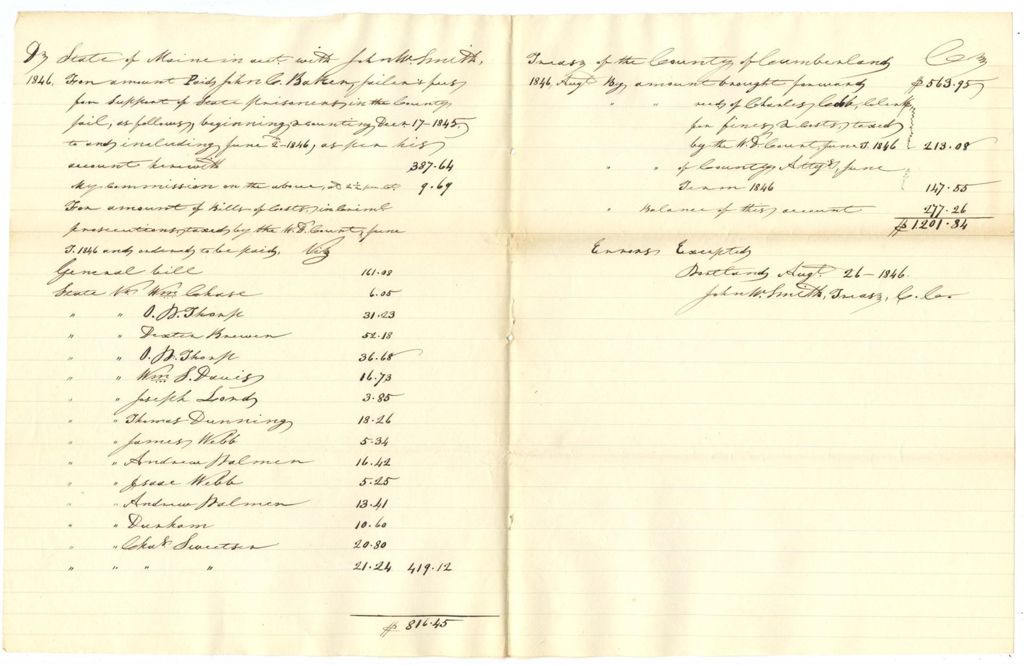 Dr State of Maine in acct. with John W. Smith,
1846. For amount Paid John C. Baker, jailer's fees
for Support of State prisoners, in the County
jail, as follows, beginning & counting Dec. 17-1845,
to and including June 2-1846, as per his
account herewith 387.64
My commission on the above, at 2½ pr ct. 9.69
For amount of Bills of Costs, in Criml
prosecutions, taxed by the W. D. Court, June
T. 1846 and ordered to be paid, Viz
General bill 161.08
State Vs. Wm. Chase 6.05
" " O. P. Thorp 31.23
" " Dexter Brewer 52.18
" " O. P. Thorp 36.68
" " Wm. S. Davis 16.73
" " Joseph Lord 3.85
" " Thomas Dunning 18.26
" " James Webb 5.34
" " Andrew Palmer 16.42
" " Isaac Webb 5.25
" " Andrew Palmer 13.41
" " Durham 10.60
" " Chas. Sweetser 20.80
" " " " 21.24 419.12
$ 816.45
Treasr of the County of Cumberland Cr
1846, Augt. By amount brought forward $563.95
" " recd. of Charles Cobb, Clerk
for fines, & Costs, taxed
by the W. D. Court, June T. 1846 213.08
" " of County Atty., June
Term 1846 147.55
" Balance of this account 277.26
$ 1201.84
Errors Excepted
Portland, Augt. 26-1846.
John W. Smith, Treasr, C. Co.